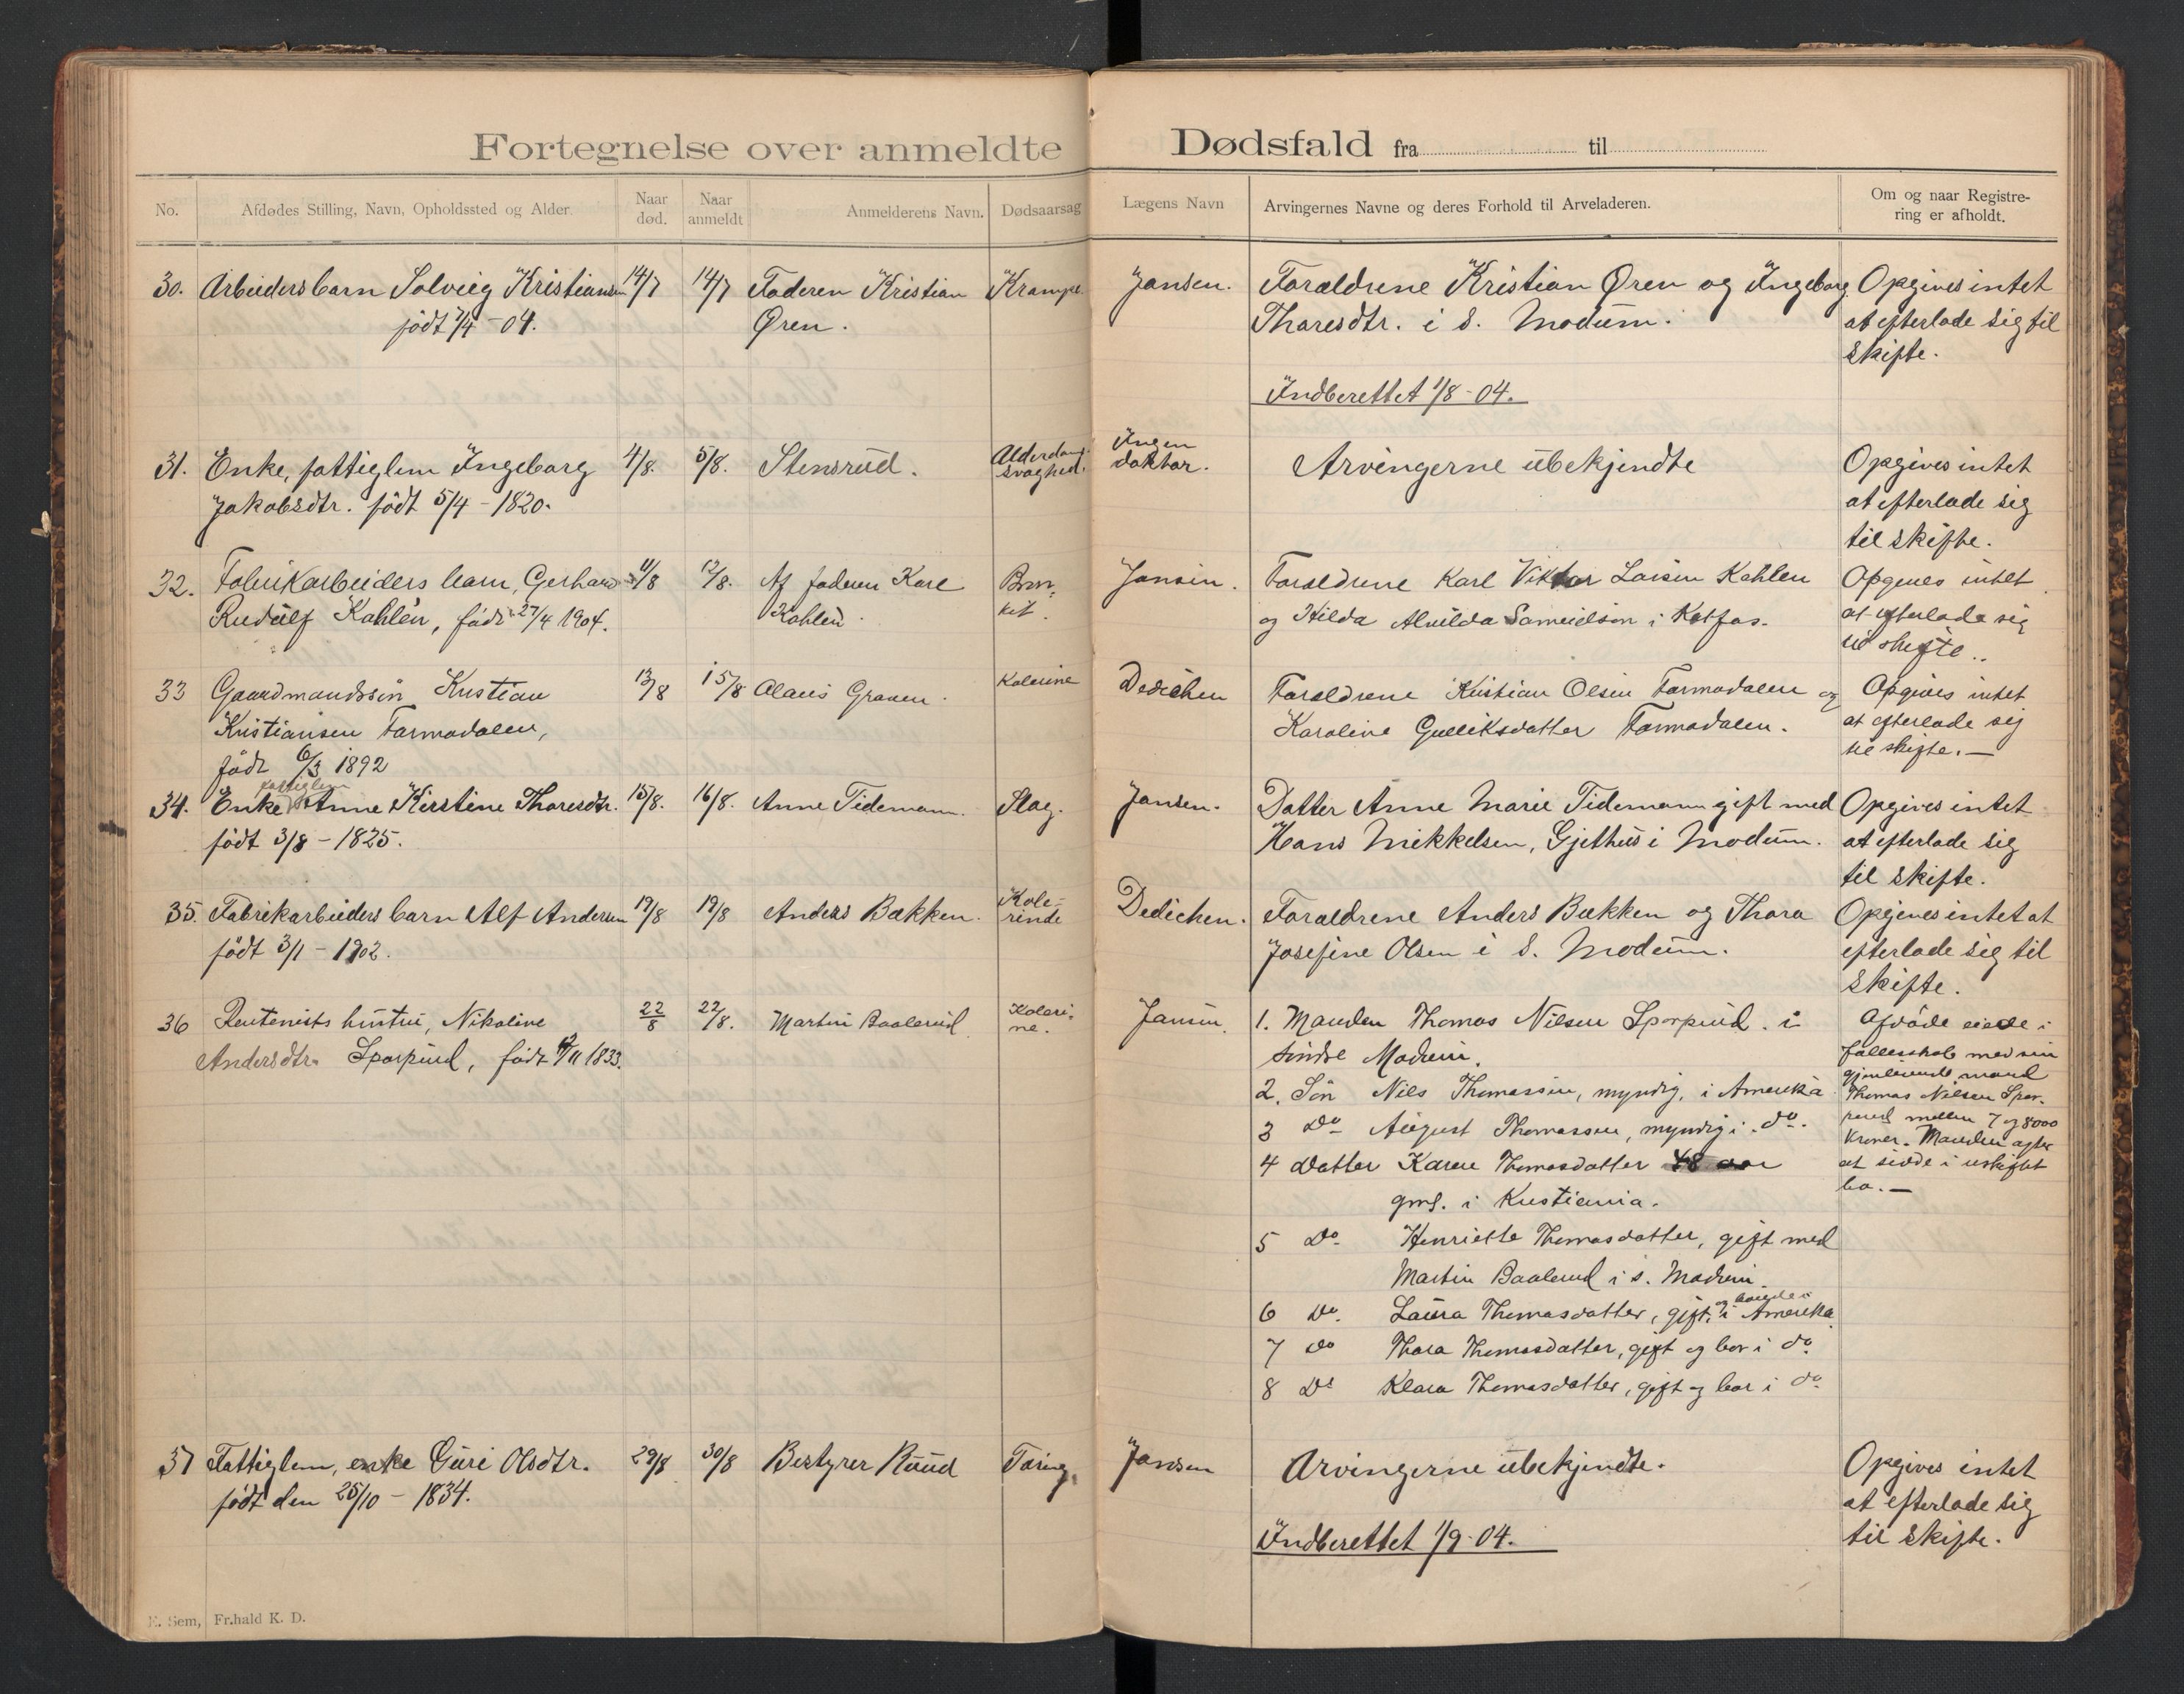 Fortegnelse over anmeldte Dødsfald fra til
No.
Afdødes Stilling, Navn, Opholdssted og Alder.
Naar død.
Naar anmeldt
Anmelderens Navn.
Dødsaarsag
Lægens Navn
Arvingernes Navne og deres Forhold til Arveladeren.
Om og naar Registre-
ring er afholdt.
30. Arbeidersbarn Solveig Kristiansen 14/7 14/7 Faderen Kristian Krampe. Jansen. Forældrene Kristian Øren og Ingeborg Opgives intet
født 7/4 - 04. Øren. Thoresdtr. i S. Modum. at efterlade sig til
skifte.
Indberettet 1/8 - 04.
31. Enke, fattiglem Ingeborg 4/8. 5/8. Stensrud. Alderdoms- Ingen Arvingerne ubekjendte Opgives intet
Jakobsdtr. født 5/4 - 1820. svaghed. doktor. at efterlade sig
til skifte.
32. Fabrikarbeiders barn, Gerhard 11/8 12/8. Af faderen Karl Bron- Jansen. Forældrene Karl Viktor Larsen Kahlen Opgives intet
Rudolf Kahlén, født 27/4 1904. Kahlén. kit. og Hilda Alvilda Samuelson i Kotfos. at efterlade sig
til skifte..
33 Gaardmandssøn Kristian 13/8 15/8 Olaus Graven. Kolerine Dedichen Forældrene Kristian Olsen Formodalen og Opgives intet
Kristiansen Formodalen, Karoline Gulliksdatter Formodalen. at efterlade sig
født 6/3 1892 til skifte. —
fattiglem
34. Enke Anne Kirstine Thoresdtr. 15/8. 16/8. Anne Tidemann. Slag. Jansen. Datter Anne Marie Tidemann gift med Opgives intet
født 3/8 - 1825. Hans Mikkelsen, Gjethus i Modum. at efterlade sig
til skifte.
35. Fabrikarbeiders barn Alf Andersen 19/8 19/8 Anders Bakken. Kole- Dedichen. Forældrene Anders Bakken og Thora Opgives intet at
født 3/1 - 1902. rinde Josefine Olsen i S. Modum. efterlade sig til
skifte.
36 Rentenists hustru, Nikoline 22/8 22/8. Martin Baalerud Koleri- Jansen. 1. Manden Thomas Nilsen Sporpind. i Afdøde eiede i
Andersdtr. Sporpind, født /11 1833. ne. søndre Modum. fællesskab med sin
gjenlevende mand
2. Søn Nils Thomassen, myndig, i Amerika Thomas Nilsen Spor-
3 Do August Thomassen, myndig i do. pind mellem 7 og 8000
kroner. Manden agter
4 Datter Karen Thomasdatter 48 aar at sidde i uskiftet
gms. i Kristiania. bo. —
5 Do. Henriette Thomasdatter, gift med
Martin Baalerud i s. Modum.
6 Do. Laura Thomasdatter, gift og boende i i Amerika
7 Do Thora Thomasdatter, gift og bor i do
8 Do Klara Thomasdatter, gift og bor i do
37 Fattiglem, enke Guri Olsdtr. 29/8 30/8 Bestyrer Ruud Tæring. Jansen Arvingerne ubekjendte. Opgives intet
født den 25/10 - 1834. at efterlade sig
Indberettet 1/9-04. til skifte.
E. Sem, Fr.hald K. D.